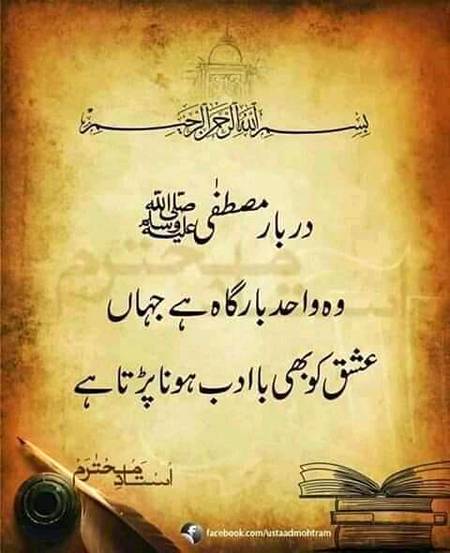 بسم الله الرحمن الرحيم
دربار مصطفیٰ ﷺ
وہ واحد بارگاہ ہے جہاں
عشق کو بھی با ادب ہونا پڑتا ہے
اُستادِ مُحترَم
facebook.com/ustaadmohtram